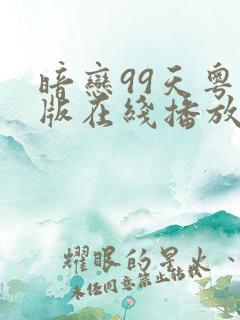 暗戀99天粵
版在綫播放
耀眼的星火、
未经同意禁止转载